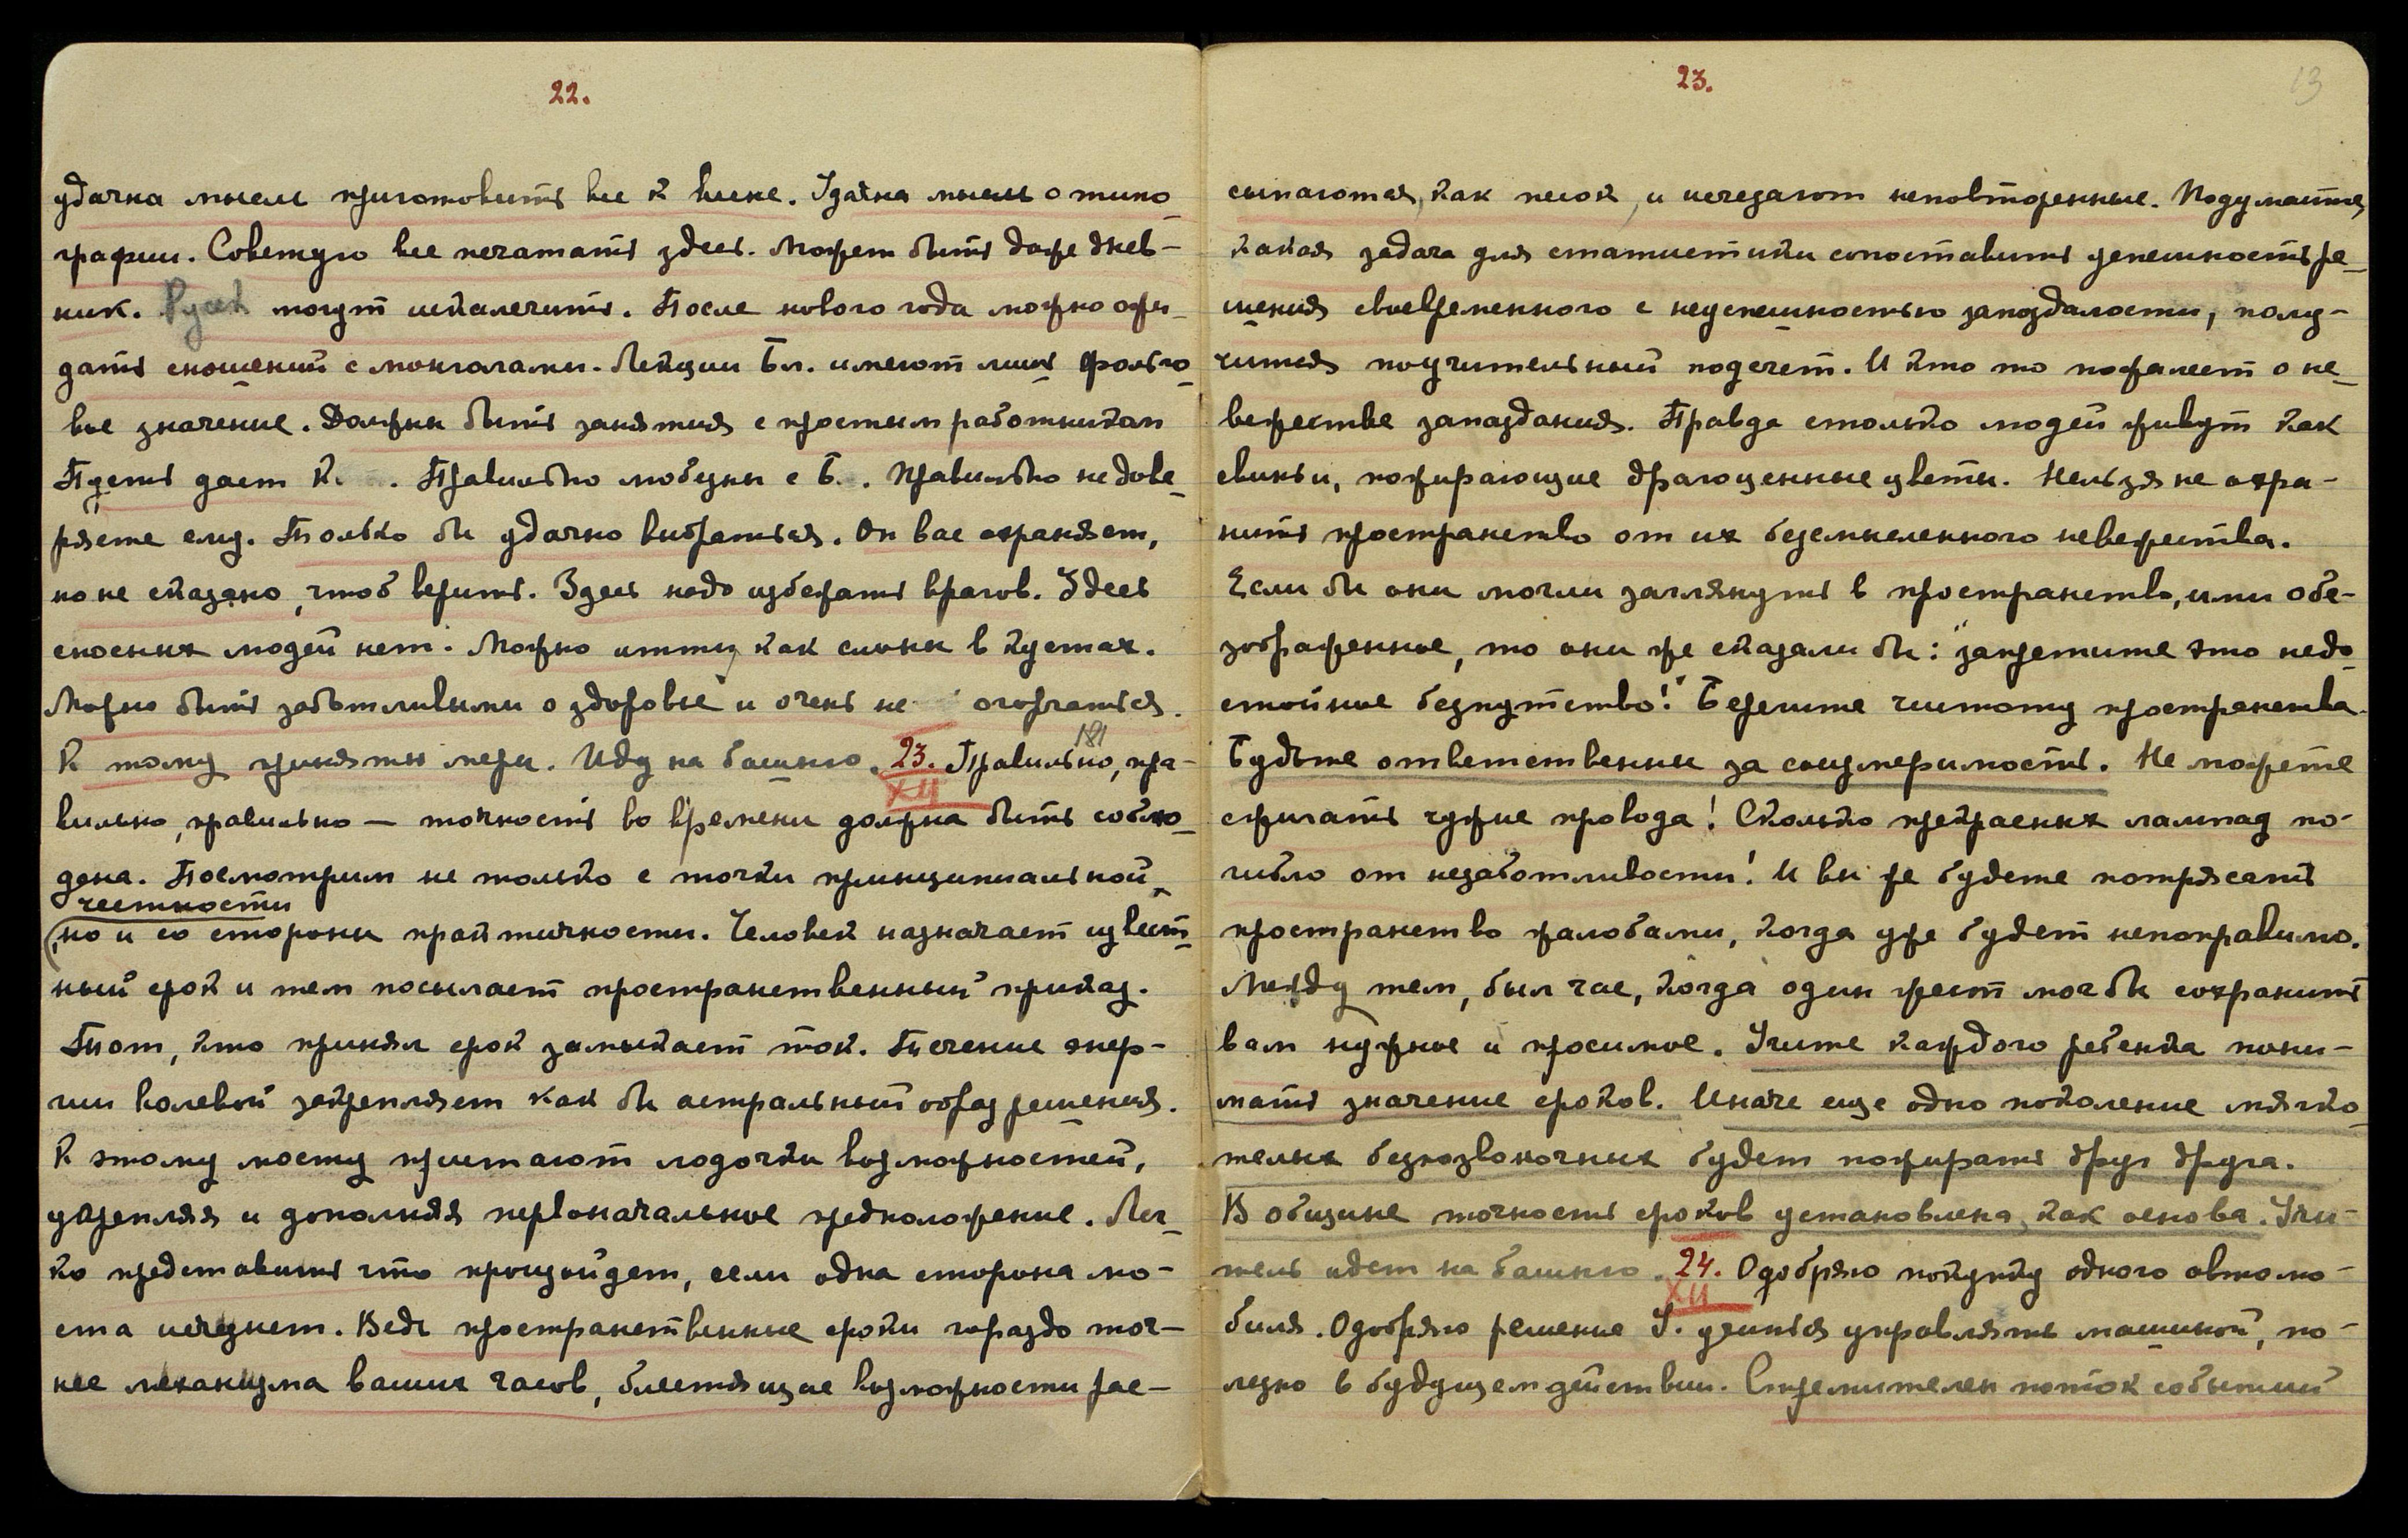 22.
удачна мысль приготовить все к весне. Удачна мысль о типо-
графии. Советую все печатать здесь. Может быть даже днев-
ник. могут искалечить. После нового года можно ожи-
дать сношений с монголами. Лекции Бл. имеют лишь фольго-
вое значение. Должны быть занятия с простым работникам
Пусть дает К. . Правильно любезны с Б. . Правильно не дове-
ряете ему. Только бы удачно выбраться. Он вас охраняет,
но не сказано, чтоб верить. Здесь надо избежать врагов. Здесь
сносных людей нет. Можно итти, как слоны в кустах.
Можно быть заботливыми о здоровье и очень не огорчаться.
К тому приняты меры. Иду на башню. 23. Правильно, пра-
XII
181
вильно, правильно — точность во времени должна быть соблю-
дена. Посмотрим не только с точки принципиальной
честности
, но и со стороны практичности. Человек назначает извест-
ный срок и тем посылает пространственный приказ.
Тот, кто принял срок замыкает ток. Течение энер-
гии волевой закрепляет как бы астральный образ решения.
К этому мосту пристают лодочки возможностей,
укрепляя и дополняя первоначальное предположение. Лег-
ко представить что произойдет, если одна сторона мо-
ста исчезнет. Ведь пространственные сроки гораздо точ-
нее механизма ваших часов, блестящие возможности рас-
23.
13
сыпаются, как песок, и исчезают неповторенные. Подумайте,
какая задача для статистики сопоставить успешность ре-
шения своевременного с неуспешностью запоздалости, полу-
чится поучительный подсчет. И кто то пожалеет о не-
вежестве запаздания. Правда столько людей живут как
свиньи, пожирающие драгоценные цветы. Нельзя не охра-
нить пространство от их безсмысленного невежества.
Если бы они могли заглянуть в пространство, ими обе-
зображенное, то они же сказали бы: "запретите это недо-
стойное безпутство!" Берегите чистоту пространства.
Будьте ответственны за соизмеримость. Не можете
сжигать чужие провода! Сколько прекрасных лампад по-
гибло от незаботливости! И вы же будете потрясать
пространство жалобами, когда уже будет непоправимо.
Между тем, был час, когда один жест мог бы сохранить
вам нужное и просимое. Учите каждого ребенка пони-
мать значение сроков. Иначе еще одно поколение мягко-
телых безпозвоночных будет пожирать друг друга.
В общине точность сроков установлена, как основа. Учи-
тель идет на башню. 24. Одобряю покупку одного автомо-
XII
биля. Одобряю решение У. учиться управлять машиной, по-
лезно в будущем действии. Стремителен поток событий